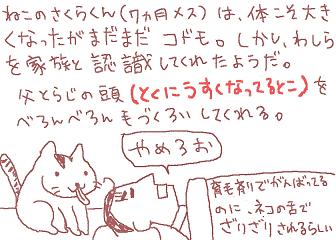 ねこのさくらくん(7ヵ月メス)は、体こそ大き
くなったがまだまだ コドモ。しかし、わしら
を家族と認識してくれたようだ。
父とらじの頭(とくにうすくなってるとこ)を
べろんべろん毛づくろいしてくれる。
やめろお
育毛剤でがんばってる
のに、ネコの舌で
ざりざりされるらしい